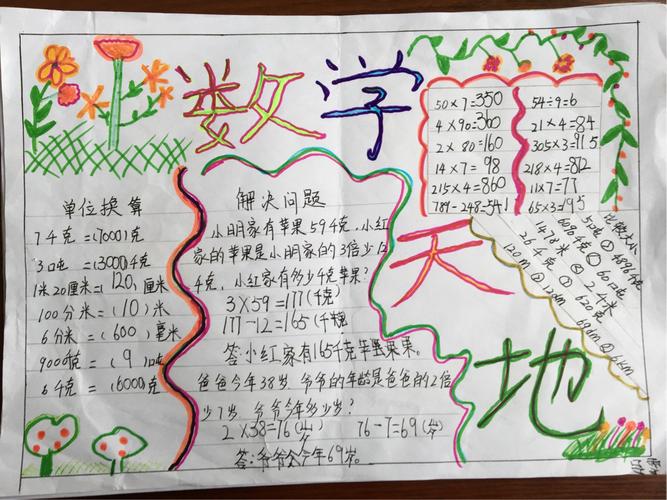 数学
天
地
单位换算
7千克=(7000)克
3口吨=(3000)千克
1米20厘米=(120)厘米
100分米=(10)米
6分米=(600)毫米
9000千克=(9)口吨
6千克=(6000)克
解决问题
小明家有苹果59千克,小红
家的苹果是小明家的3倍少12
千克,小红家有多少千克苹果?
3×59=177(千克)
177-12=165(千克)
答:小红家有165千克苹果。
爸爸今年38岁,爷爷的年龄是爸爸的2倍
少7岁,爷爷今年多少岁?
2×38=76(岁) 76-7=69(岁)
答:爷爷今年69岁。
50×7=350
4×90=360
2×80=160
14×7=98
215×4=860
789-248=541
54÷9=6
21×4=84
305×3=915
218×4=872
11×7=77
65×3=195
比较大小